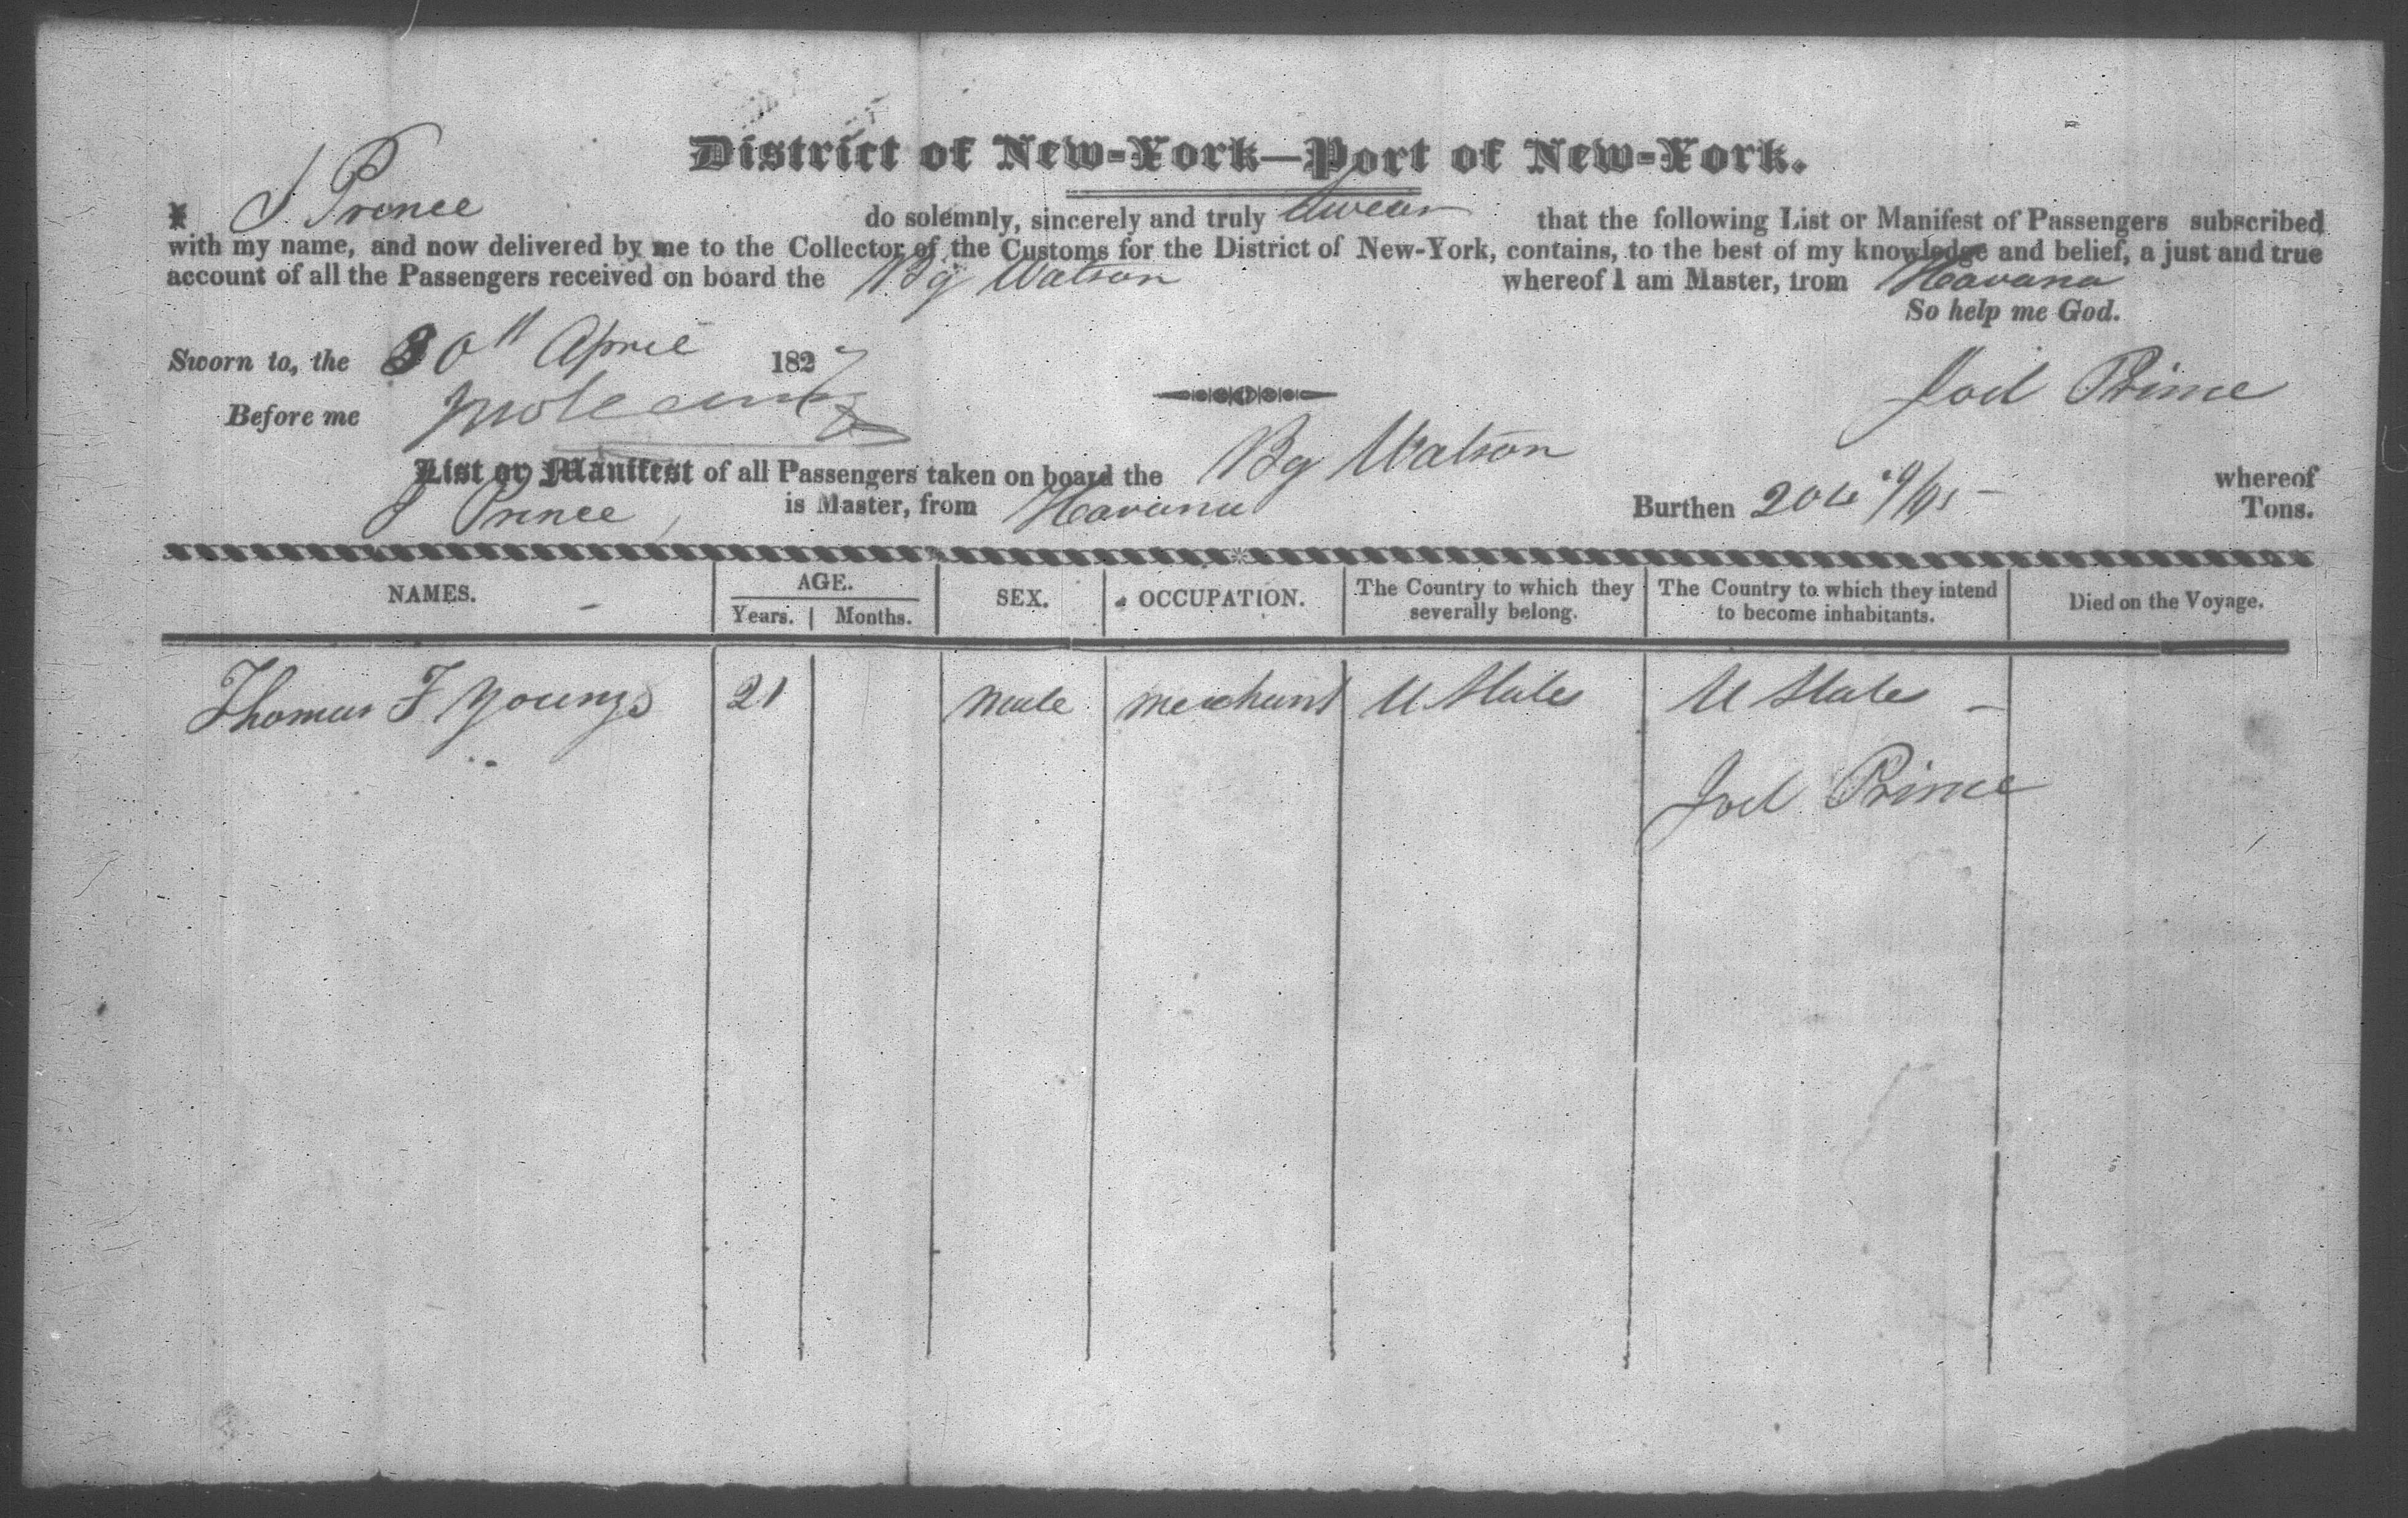 District of New-York—Port of New-York.
I J Prince do solemnly, sincerely and truly Swear that the following List or Manifest of Passengers subscribed
with my name, and now delivered by me to the Collector of the Customs for the District of New-York, contains, to the best of my knowledge and belief, a just and true
account of all the Passengers received on board the Bg Watson whereof I am Master, from Havana
So help me God.
Sworn to, the 30th April 1827
Joel Prince
Before me
List or Manifest of all Passengers taken on board the Bg Watson whereof
J Prince is Master, from Havana Burthen Tons.
NAMES. AGE. SEX. OCCUPATION. The Country to which they severally belong. The Country to which they intend to become inhabitants. Died on the Voyage.
Years. Months.
Thomas F Youngs 21 Male merchant U States U States —
Joel Prince